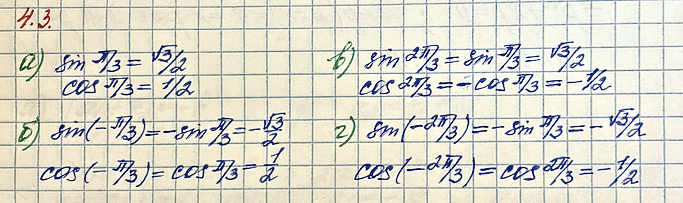 4.3.
а) sin π/3 = √3/2
cos π/3 = 1/2
б) sin(-π/3) = -sin π/3 = -√3/2
cos(-π/3) = cos π/3 = 1/2
в) sin 2π/3 = sin π/3 = √3/2
cos 2π/3 = -cos π/3 = -1/2
г) sin(-2π/3) = -sin π/3 = -√3/2
cos(-2π/3) = cos 2π/3 = -1/2